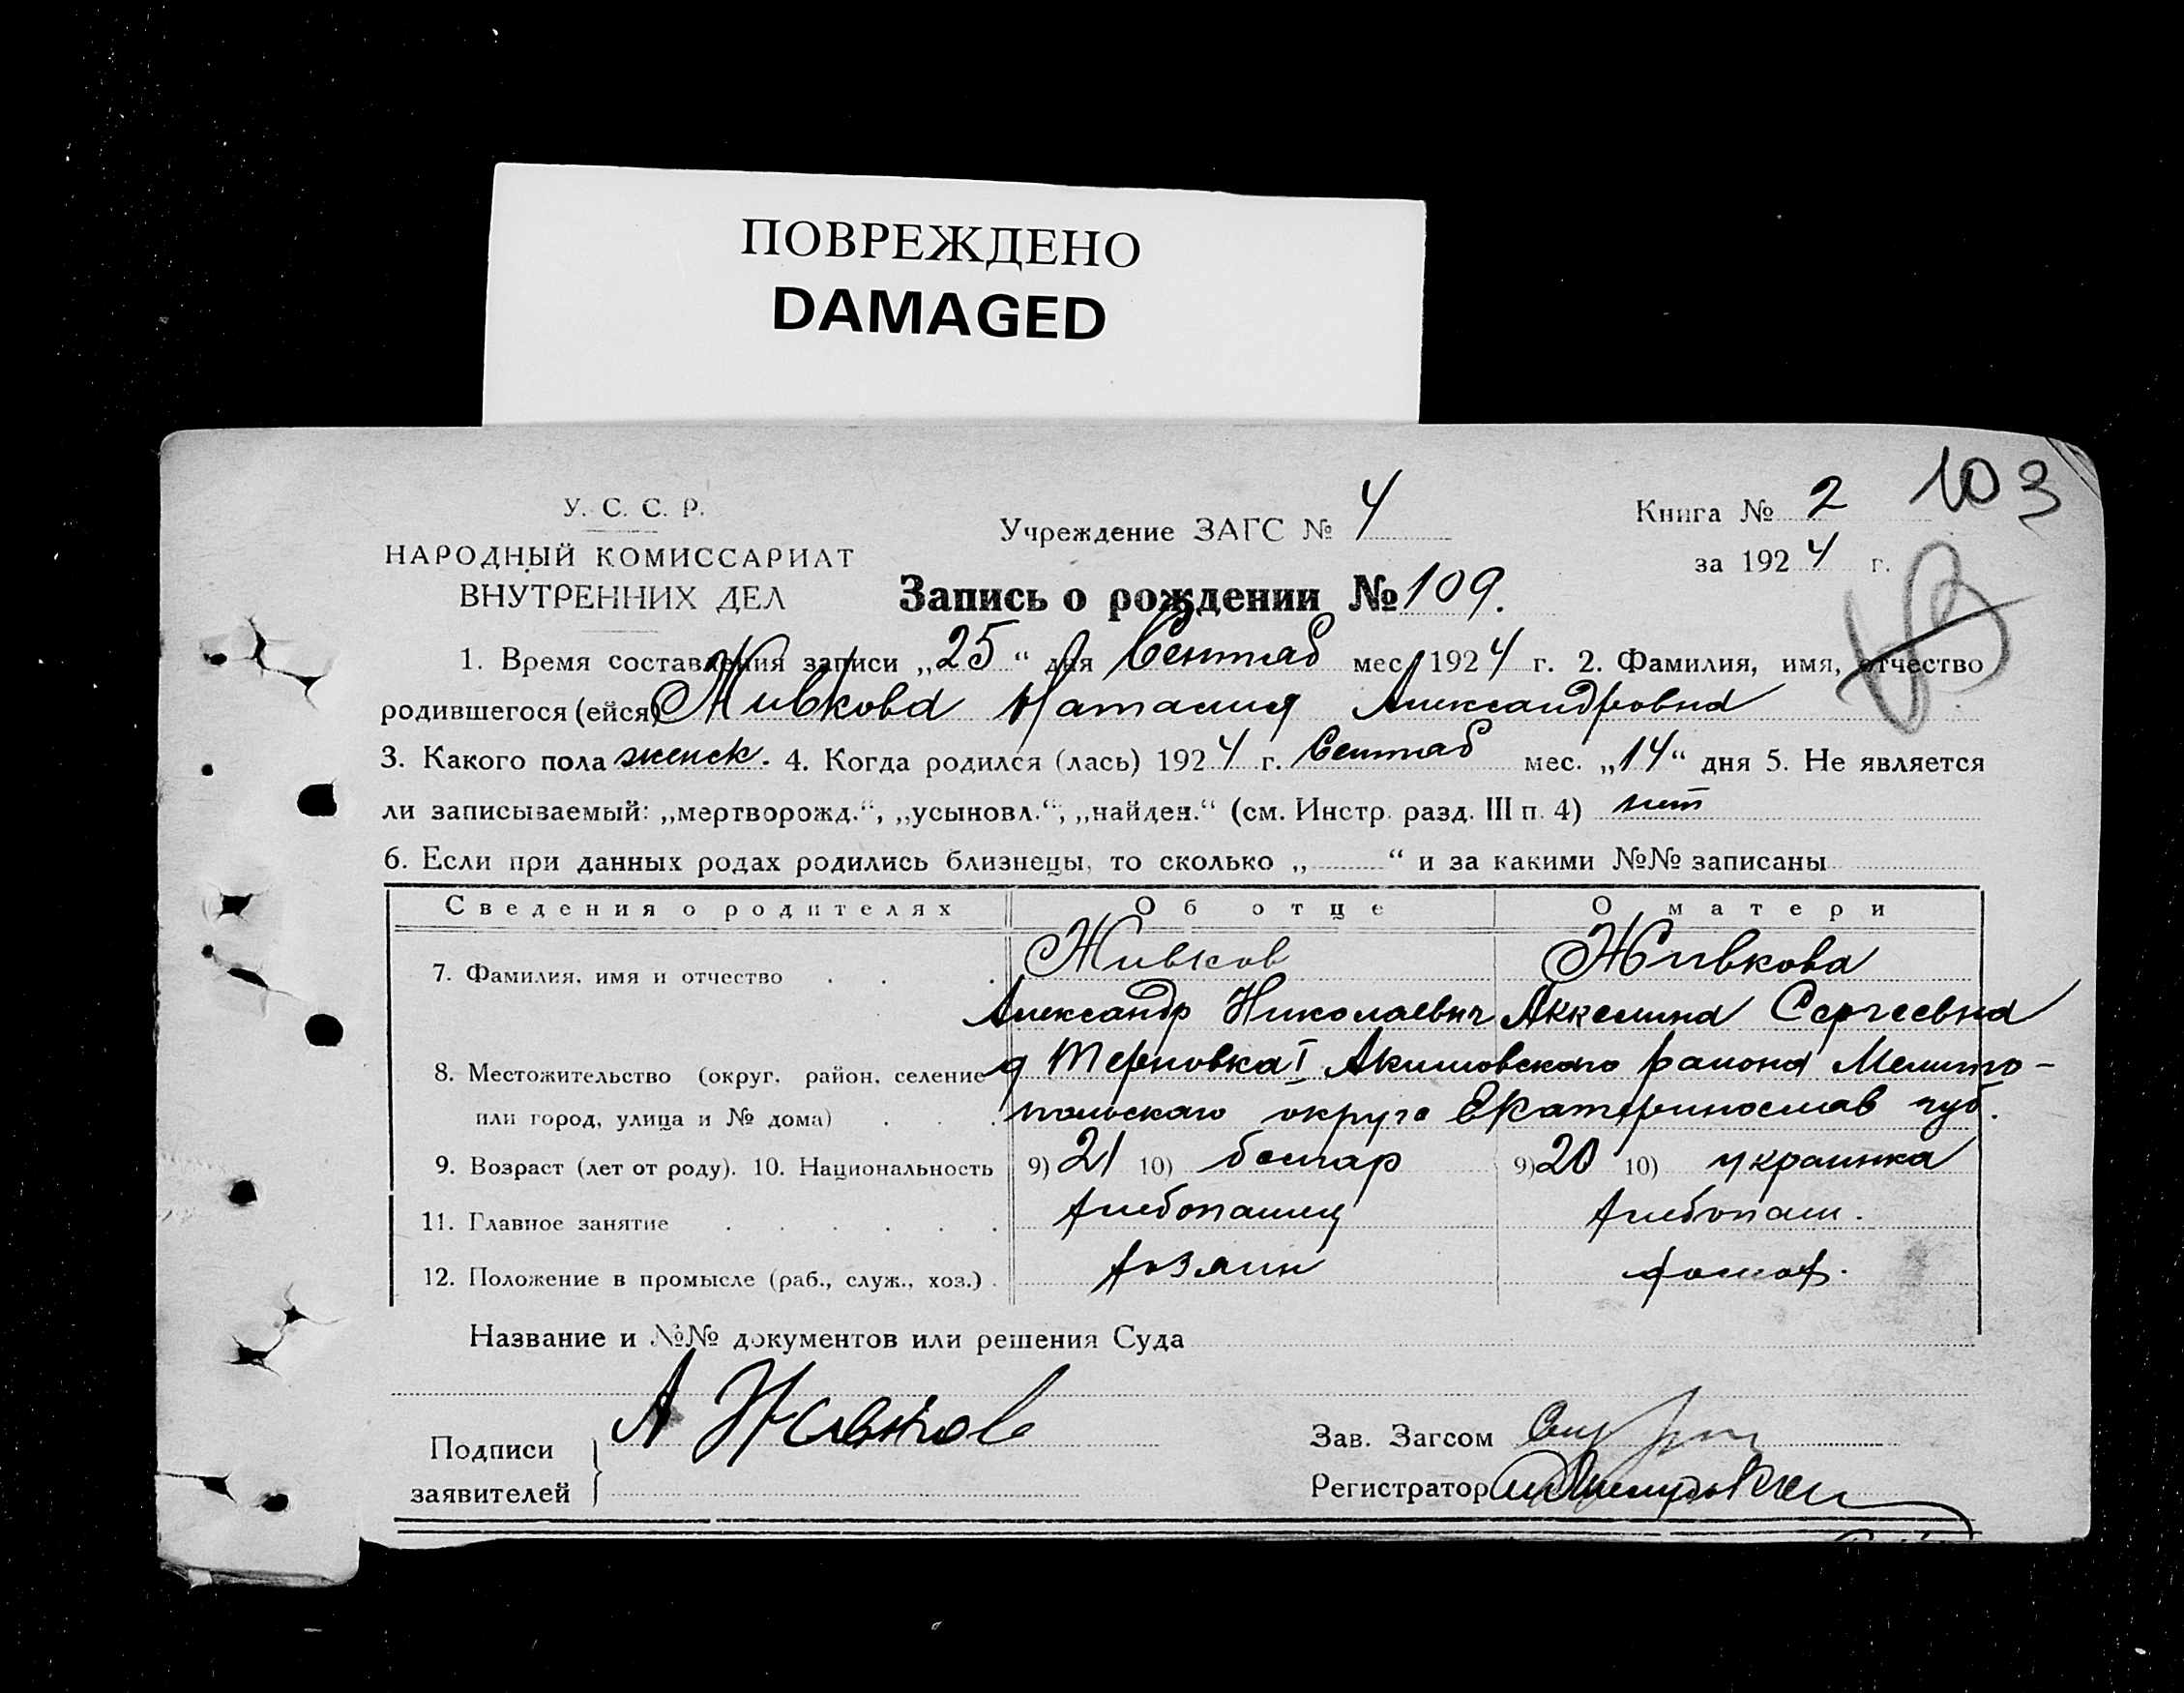 ПОВРЕЖДЕНО
DAMAGED
103
У. С. С. Р.
НАРОДНЫЙ КОМИССАРИАТ
ВНУТРЕННИХ ДЕЛ
Учреждение ЗАГС № 4
Книга № 2
за 1924 г.
Запись о рождении № 109.
1. Время составления записи „25“ дня Сентяб мес. 1924 г. 2. Фамилия, имя, отчество
родившегося (ейся) Живкова Наталия Александровна
3. Какого пола женск. 4. Когда родился (лась) 1924 г. Сентяб мес. „14“ дня 5. Не является
ли записываемый: „мертворожд.“, „усыновл.“, „найден.“ (см. Инстр. разд. III п. 4) нет
6. Если при данных родах родились близнецы, то сколько „ “ и за какими №№ записаны
Сведения о родителях Об отце О матери
7. Фамилия, имя и отчество Живков Живкова
Александр Николаевич Аккелина Сергеевна
8. Местожительство (округ, район, селение д Терновка I Акимовского района Мелито-
или город, улица и № дома) польского округа Екатеринослав губ.
9. Возраст (лет от роду). 10. Национальность 9) 21 10) болгар 9) 20 10) украинка
11. Главное занятие хлебопашец хлебопаш.
12. Положение в промысле (раб., служ., хоз.) хозяин домох.
Название и №№ документов или решения Суда
Подписи
заявителей
А Живков
Зав. Загсом
Регистратор